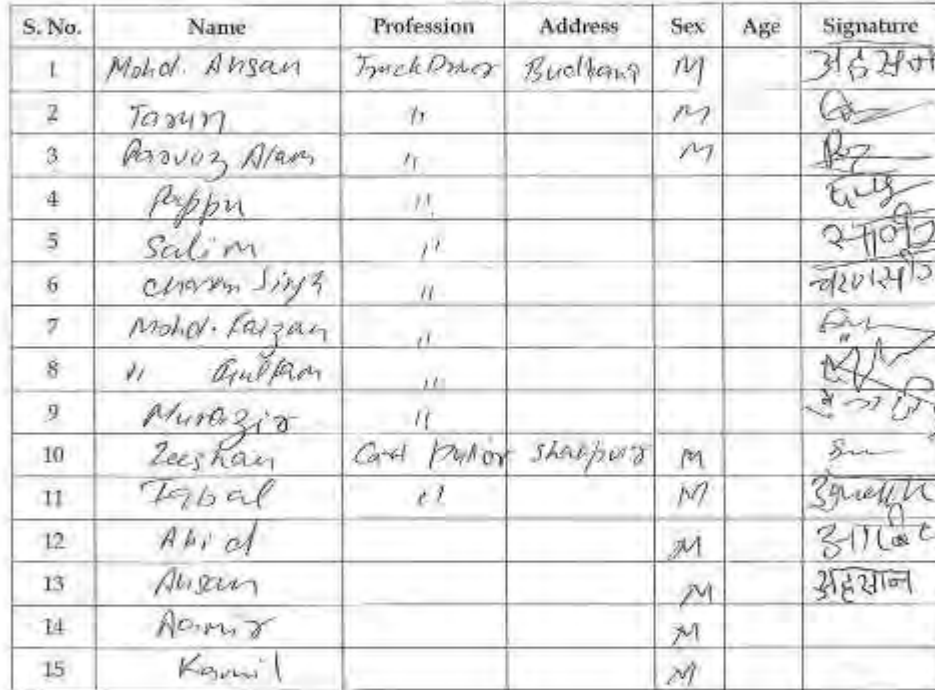 S. No. Name Profession Address Sex Age Signature
1 Mohd. Ahsan Truck Driver Budhana M अहसान
2 Tarun " M
3 Parvez Alam " M
4 Pappu "
5 Salim "
6 Charan Singh "
7 Mohd. Faizan "
8 " Gulfam "
9 "
10 Zeeshan Cart Puller Shahpura M
11 Iqbal " M
12 Abid M
13 Ahsan M अहसान
14 Aamir M
15 Kamil M